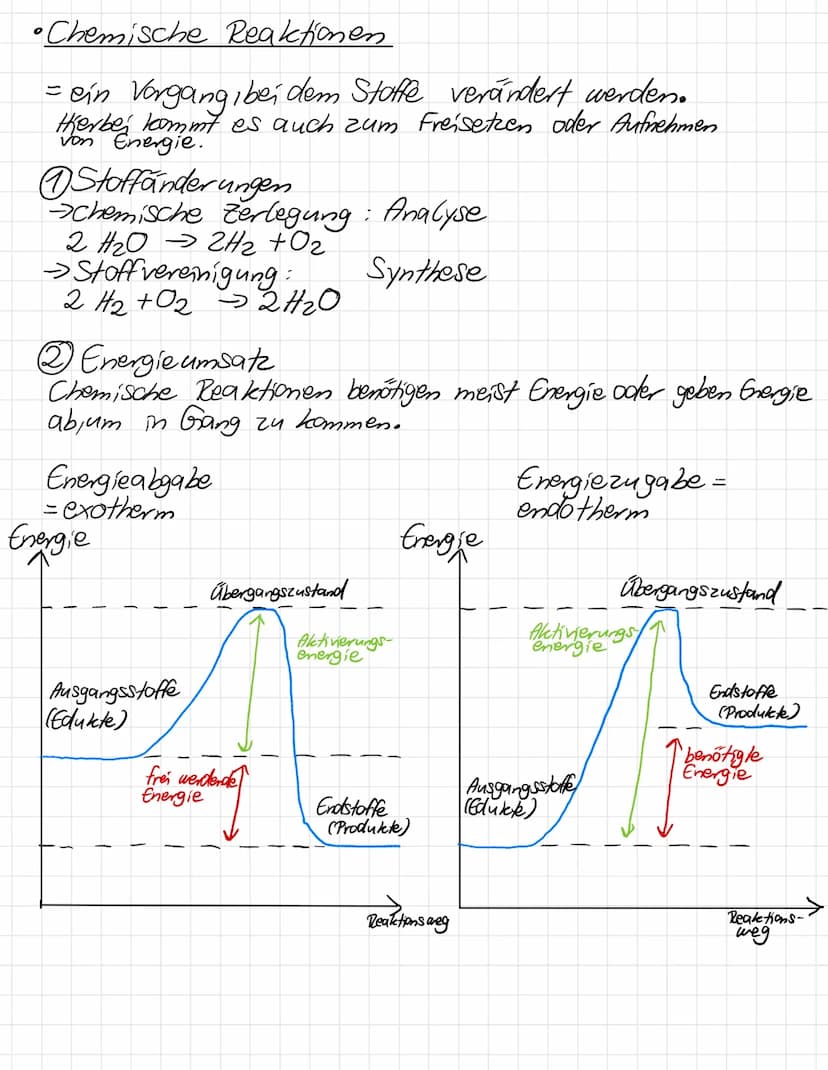 • Chemische Reaktionen
= ein Vorgang, bei dem Stoffe verändert werden.
Hierbei kommt es auch zum Freisetzen oder Aufnehmen
von Energie.
① Stoffänderungen
→ Chemische Zerlegung : Analyse
2 H₂O → 2H₂ + O₂
→ Stoffvereinigung : Synthese
2 H₂ + O₂ → 2 H₂O
② Energieumsatz
Chemische Reaktionen benötigen meist Energie oder geben Energie
ab, um in Gang zu kommen.
Energieabgabe
= exotherm
Energie
Übergangszustand
Aktivierungs-
energie
Ausgangsstoffe
(Edukte)
frei werdende
Energie
Endstoffe
(Produkte)
Reaktionsweg
Energiezugabe =
endotherm
Energie
Übergangszustand
Aktivierungs-
energie
Endstoffe
(Produkte)
benötigte
Energie
Ausgangsstoffe
(Edukte)
Reaktions-
weg